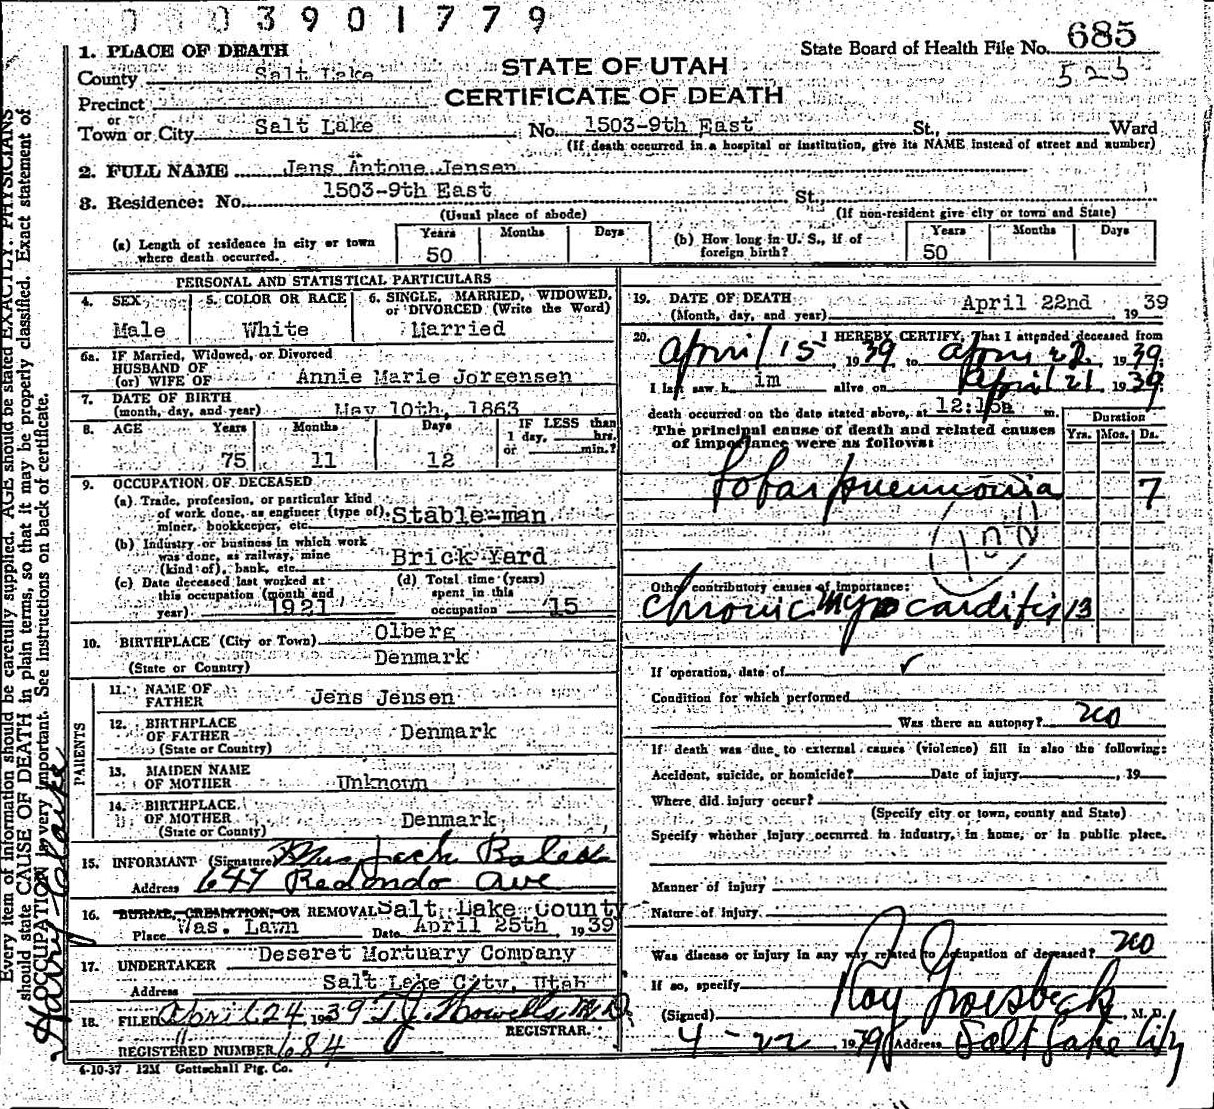 0003901779
1. PLACE OF DEATH
State Board of Health File No. 685
County Salt Lake
STATE OF UTAH
525
Precinct
CERTIFICATE OF DEATH
or
Town or City Salt Lake No. 1503-9th East St., Ward
(If death occurred in a hospital or institution, give its NAME instead of street and number)
2. FULL NAME Jens Antone Jensen
3. Residence: No. 1503-9th East St.,
(Usual place of abode) (If non-resident give city or town and State)
(a) Length of residence in city or town where death occurred. Years 50 Months Days
(b) How long in U. S., if of foreign birth? Years 50 Months Days
PERSONAL AND STATISTICAL PARTICULARS
4. SEX Male
5. COLOR OR RACE White
6. SINGLE, MARRIED, WIDOWED, or DIVORCED (Write the Word) Married
6a. IF Married, Widowed, or Divorced
HUSBAND OF
(or) WIFE OF Annie Marie Jorgensen
7. DATE OF BIRTH
(month, day, and year) May 10th, 1863
8. AGE Years 75 Months 11 Days 12 IF LESS than 1 day, hrs. or min.?
9. OCCUPATION OF DECEASED
(a) Trade, profession, or particular kind
of work done, as engineer (type of),
miner, bookkeeper, etc. Stable-man
(b) Industry or business in which work
was done, as railway, mine
(kind of), bank, etc. Brick Yard
(c) Date deceased last worked at
this occupation (month and
year) 1921
(d) Total time (years)
spent in this
occupation 15
10. BIRTHPLACE (City or Town) Olberg
(State or Country) Denmark
PARENTS
11. NAME OF FATHER Jens Jensen
12. BIRTHPLACE OF FATHER
(State or Country) Denmark
13. MAIDEN NAME OF MOTHER Unknown
14. BIRTHPLACE OF MOTHER
(State or Country) Denmark
15. INFORMANT (Signature) Mrs Jack
Address 647 Redondo Ave
16. BURIAL, CREMATION, OR REMOVAL Salt Lake County
Place Was. Lawn Date April 25th, 1939
17. UNDERTAKER Deseret Mortuary Company
Address Salt Lake City, Utah
18. FILED April 24 1939 T. J. Howells M.D.
REGISTRAR.
REGISTERED NUMBER 684
4-10-37 12M Gottschall Ptg. Co.
19. DATE OF DEATH
(Month, day, and year) April 22nd 1939
20. I HEREBY CERTIFY, That I attended deceased from
April 15 1939 to April 22, 1939
I last saw h im alive on April 21 1939
death occurred on the date stated above, at 12:15a m.
The principal cause of death and related causes
of importance were as follows:
Duration
Yrs. Mos. Ds.
Lobar pneumonia 7
Other contributory causes of importance:
Chronic Myocarditis 13
If operation, date of ✓
Condition for which performed
Was there an autopsy? no
If death was due to external causes (violence) fill in also the following:
Accident, suicide, or homicide? Date of injury , 19
Where did injury occur?
(Specify city or town, county and State)
Specify whether injury occurred in industry, in home, or in public place.
Manner of injury
Nature of injury
Was disease or injury in any way related to occupation of deceased? no
If so, specify
(Signed) Roy Groesbeck, M. D.
4-22, 1939 Address Salt Lake City
Every item of information should be carefully supplied. AGE should be stated EXACTLY. PHYSICIANS
should state CAUSE OF DEATH in plain terms, so that it may be properly classified. Exact statement of
OCCUPATION is very important. See instructions on back of certificate.